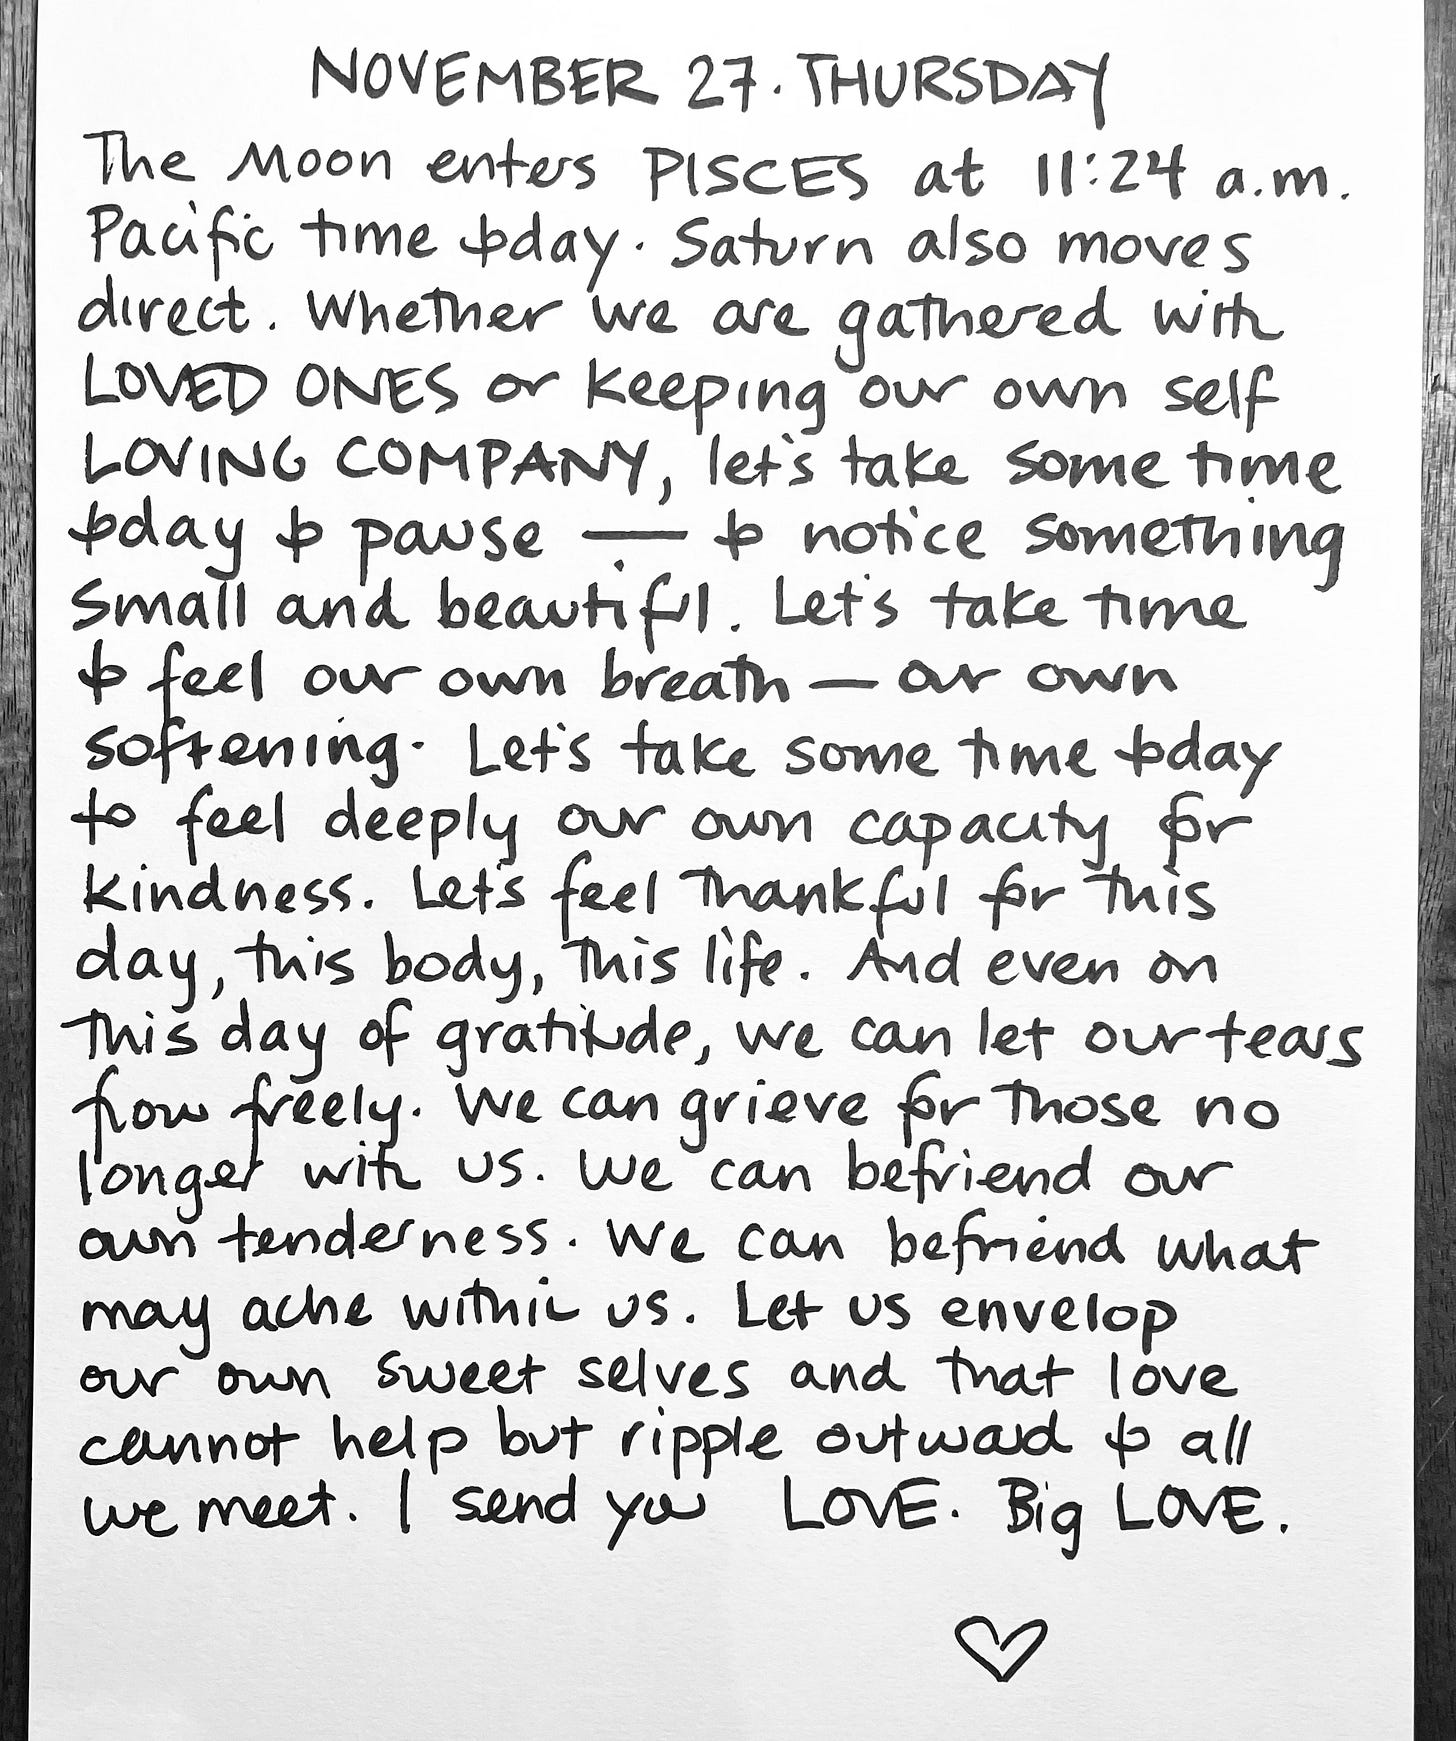 NOVEMBER 27. THURSDAY
The Moon enters PISCES at 11:24 a.m.
Pacific time today. Saturn also moves
direct. Whether we are gathered with
LOVED ONES or keeping our own self
LOVING COMPANY, let's take some time
today to pause — to notice something
small and beautiful. Let's take time
to feel our own breath — our own
softening. Let's take some time today
to feel deeply our own capacity for
kindness. Let's feel thankful for this
day, this body, this life. And even on
this day of gratitude, we can let our tears
flow freely. We can grieve for those no
longer with us. We can befriend our
own tenderness. We can befriend what
may ache within us. Let us envelop
our own sweet selves and that love
cannot help but ripple outward to all
we meet. I send you LOVE. Big LOVE.